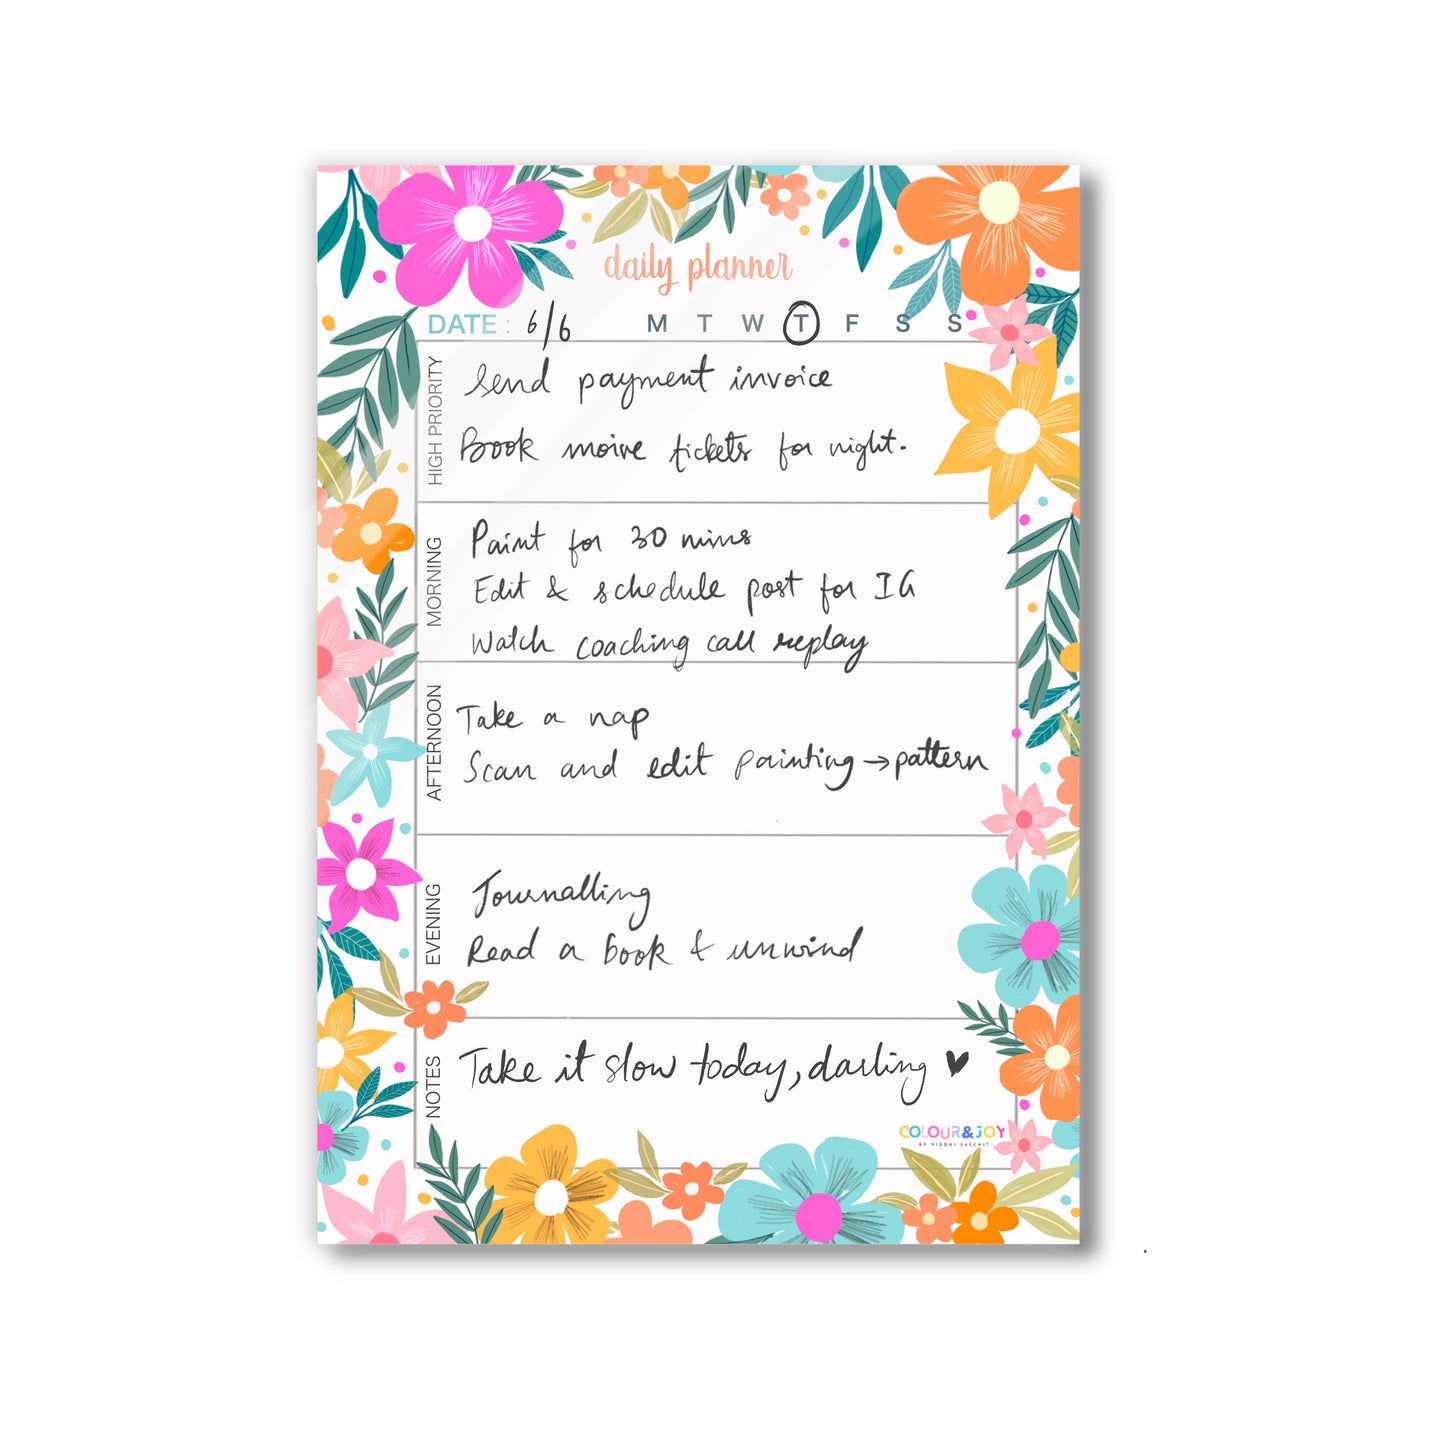 daily planner
DATE : 6/6 M T W T F S S
HIGH PRIORITY
Send payment invoice
Book moive tickets for night.
MORNING
Paint for 30 mins
Edit & schedule post for IG
Watch coaching call replay
AFTERNOON
Take a nap
Scan and edit painting → pattern
EVENING
Journalling
Read a book & unwind
NOTES
Take it slow today, darling ♥
COLOUR&JOY
BY VIDDHI SASCHIT